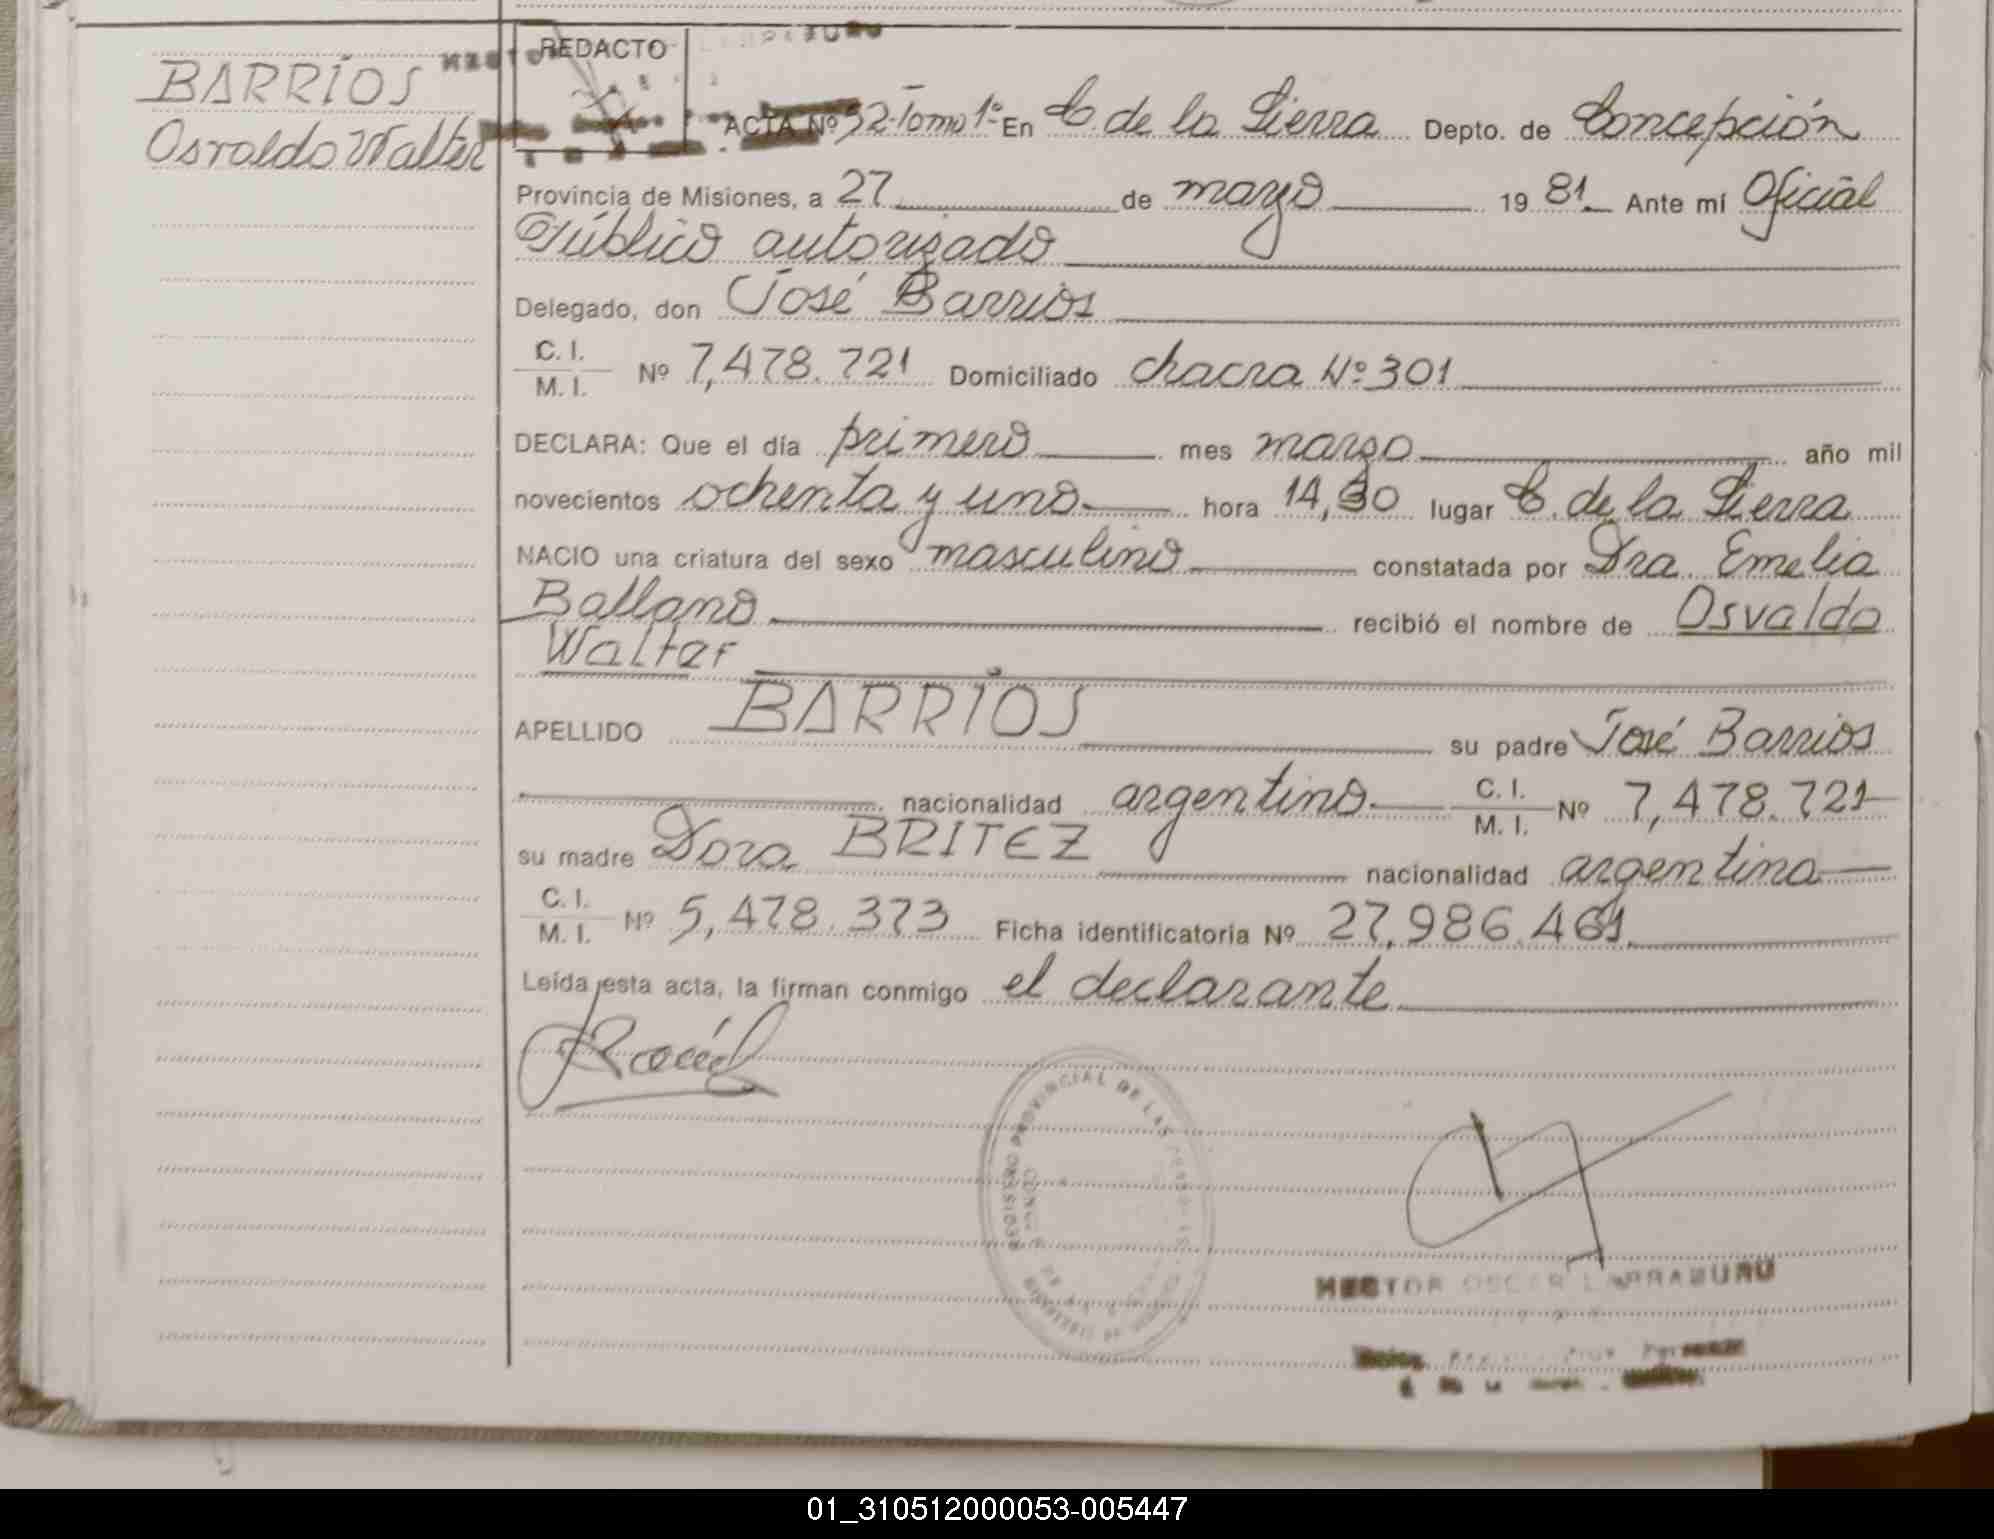 BARRIOS
Osvaldo Walter
REDACTO
ACTA Nº 52 Tomo 1º En C. de la Sierra Depto. de Concepción
Provincia de Misiones, a 27 de marzo 1981 Ante mí Oficial
Público autorizado
Delegado, don José Barrios
C. I.
M. I. Nº 7,478.721 Domiciliado chacra Nº 301
DECLARA: Que el día primero mes marzo año mil
novecientos ochenta y uno hora 14,30 lugar C. de la Sierra
NACIO una criatura del sexo masculino constatada por Dra. Emelia
Ballano recibió el nombre de Osvaldo
Walter
APELLIDO BARRIOS su padre José Barrios
nacionalidad argentino C. I. M. I. Nº 7,478.721
su madre Dora BRITEZ nacionalidad argentina
C. I.
M. I. Nº 5,478.373 Ficha identificatoria Nº 27,986.461
Leída esta acta, la firman conmigo el declarante
REGISTRO PROVINCIAL DE LAS
HECTOR OSCAR LARRABURU
01_310512000053-005447